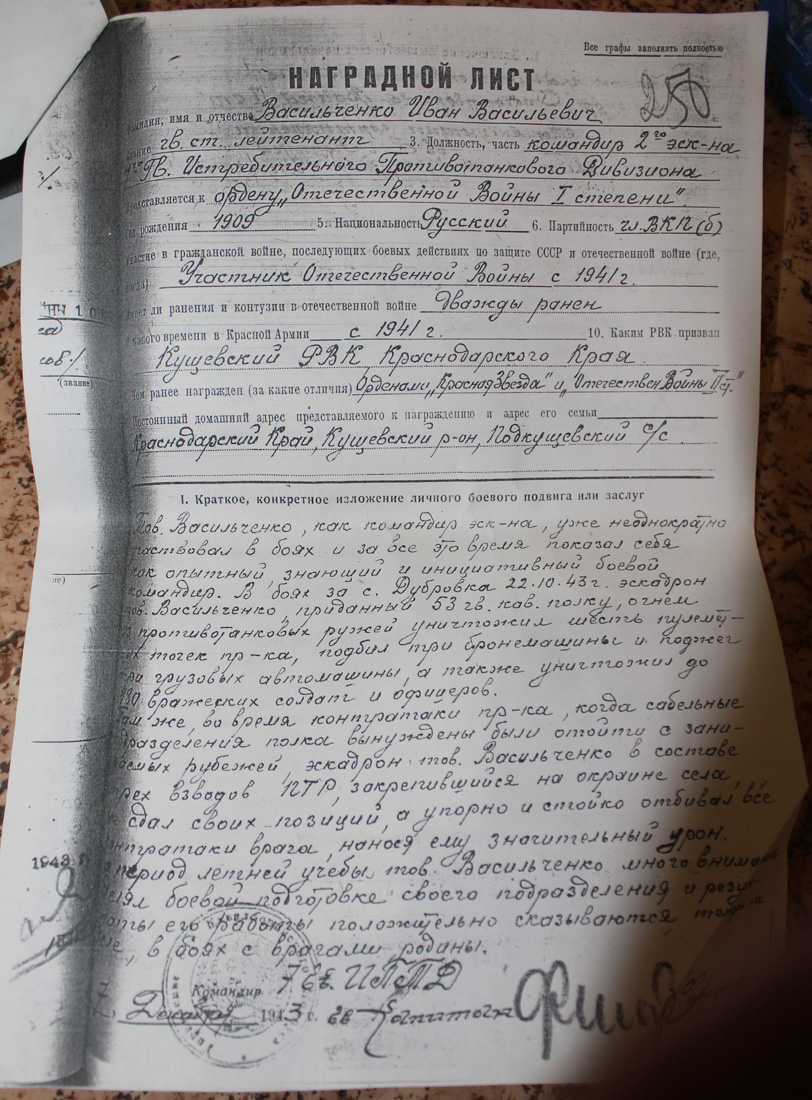 Все графы заполнять полностью
НАГРАДНОЙ ЛИСТ
250
имя и отчество Васильченко Иван Васильевич
гв. ст. лейтенант 3. Должность, часть командир 2го эск-на
Гв. Истребительного Противотанкового Дивизиона
Представляется к ордену „Отечественной Войны I степени"
рождения 1909 5. Национальность Русский 6. Партийность чл. ВКП(б)
Участие в гражданской войне, последующих боевых действиях по защите СССР и отечественной войне (где,
Участник Отечественной Войны с 1941 г.
ли ранения и контузии в отечественной войне дважды ранен
времени в Красной Армии с 1941 г. 10. Каким РВК призван
Кущевский РВК Краснодарского Края
Чем ранее награжден (за какие отличия) Орденами „Красная Звезда" и „Отечествен Войны II ст."
Постоянный домашний адрес представляемого к награждению и адрес его семьи
Краснодарский Край, Кущевский р-он, Подкущевский с/с
(звание)
1. Краткое, конкретное изложение личного боевого подвига или заслуг
Тов. Васильченко, как командир эск-на, уже неоднократно
участвовал в боях и за все это время показал себя
как опытный, знающий и инициативный боевой
командир. В боях за с. Дубровка 22.10.43 г. эскадрон
тов. Васильченко, приданный 53 гв. кав. полку, огнем
противотанковых ружей уничтожил шесть пулемё-
точек пр-ка, подбил три бронемашины и поджег
три грузовых автомашины, а также уничтожил до
вражеских солдат и офицеров.
Там же, во время контратаки пр-ка, когда сабельные
подразделения полка вынуждены были отойти с зани-
маемых рубежей, эскадрон тов. Васильченко в составе
трех взводов ПТР, закрепившийся на окраине села,
сдал своих позиций, а упорно и стойко отбивал все
контратаки врага, нанося ему значительный урон.
период летней учебы тов. Васильченко много внима
боевой подготовке своего подразделения и резу
его работы положительно сказываются
в боях с врагами родины.
1943 г.
Командир 7 гв. ИПТД
гв. Капитан
Декабря 1943 г.